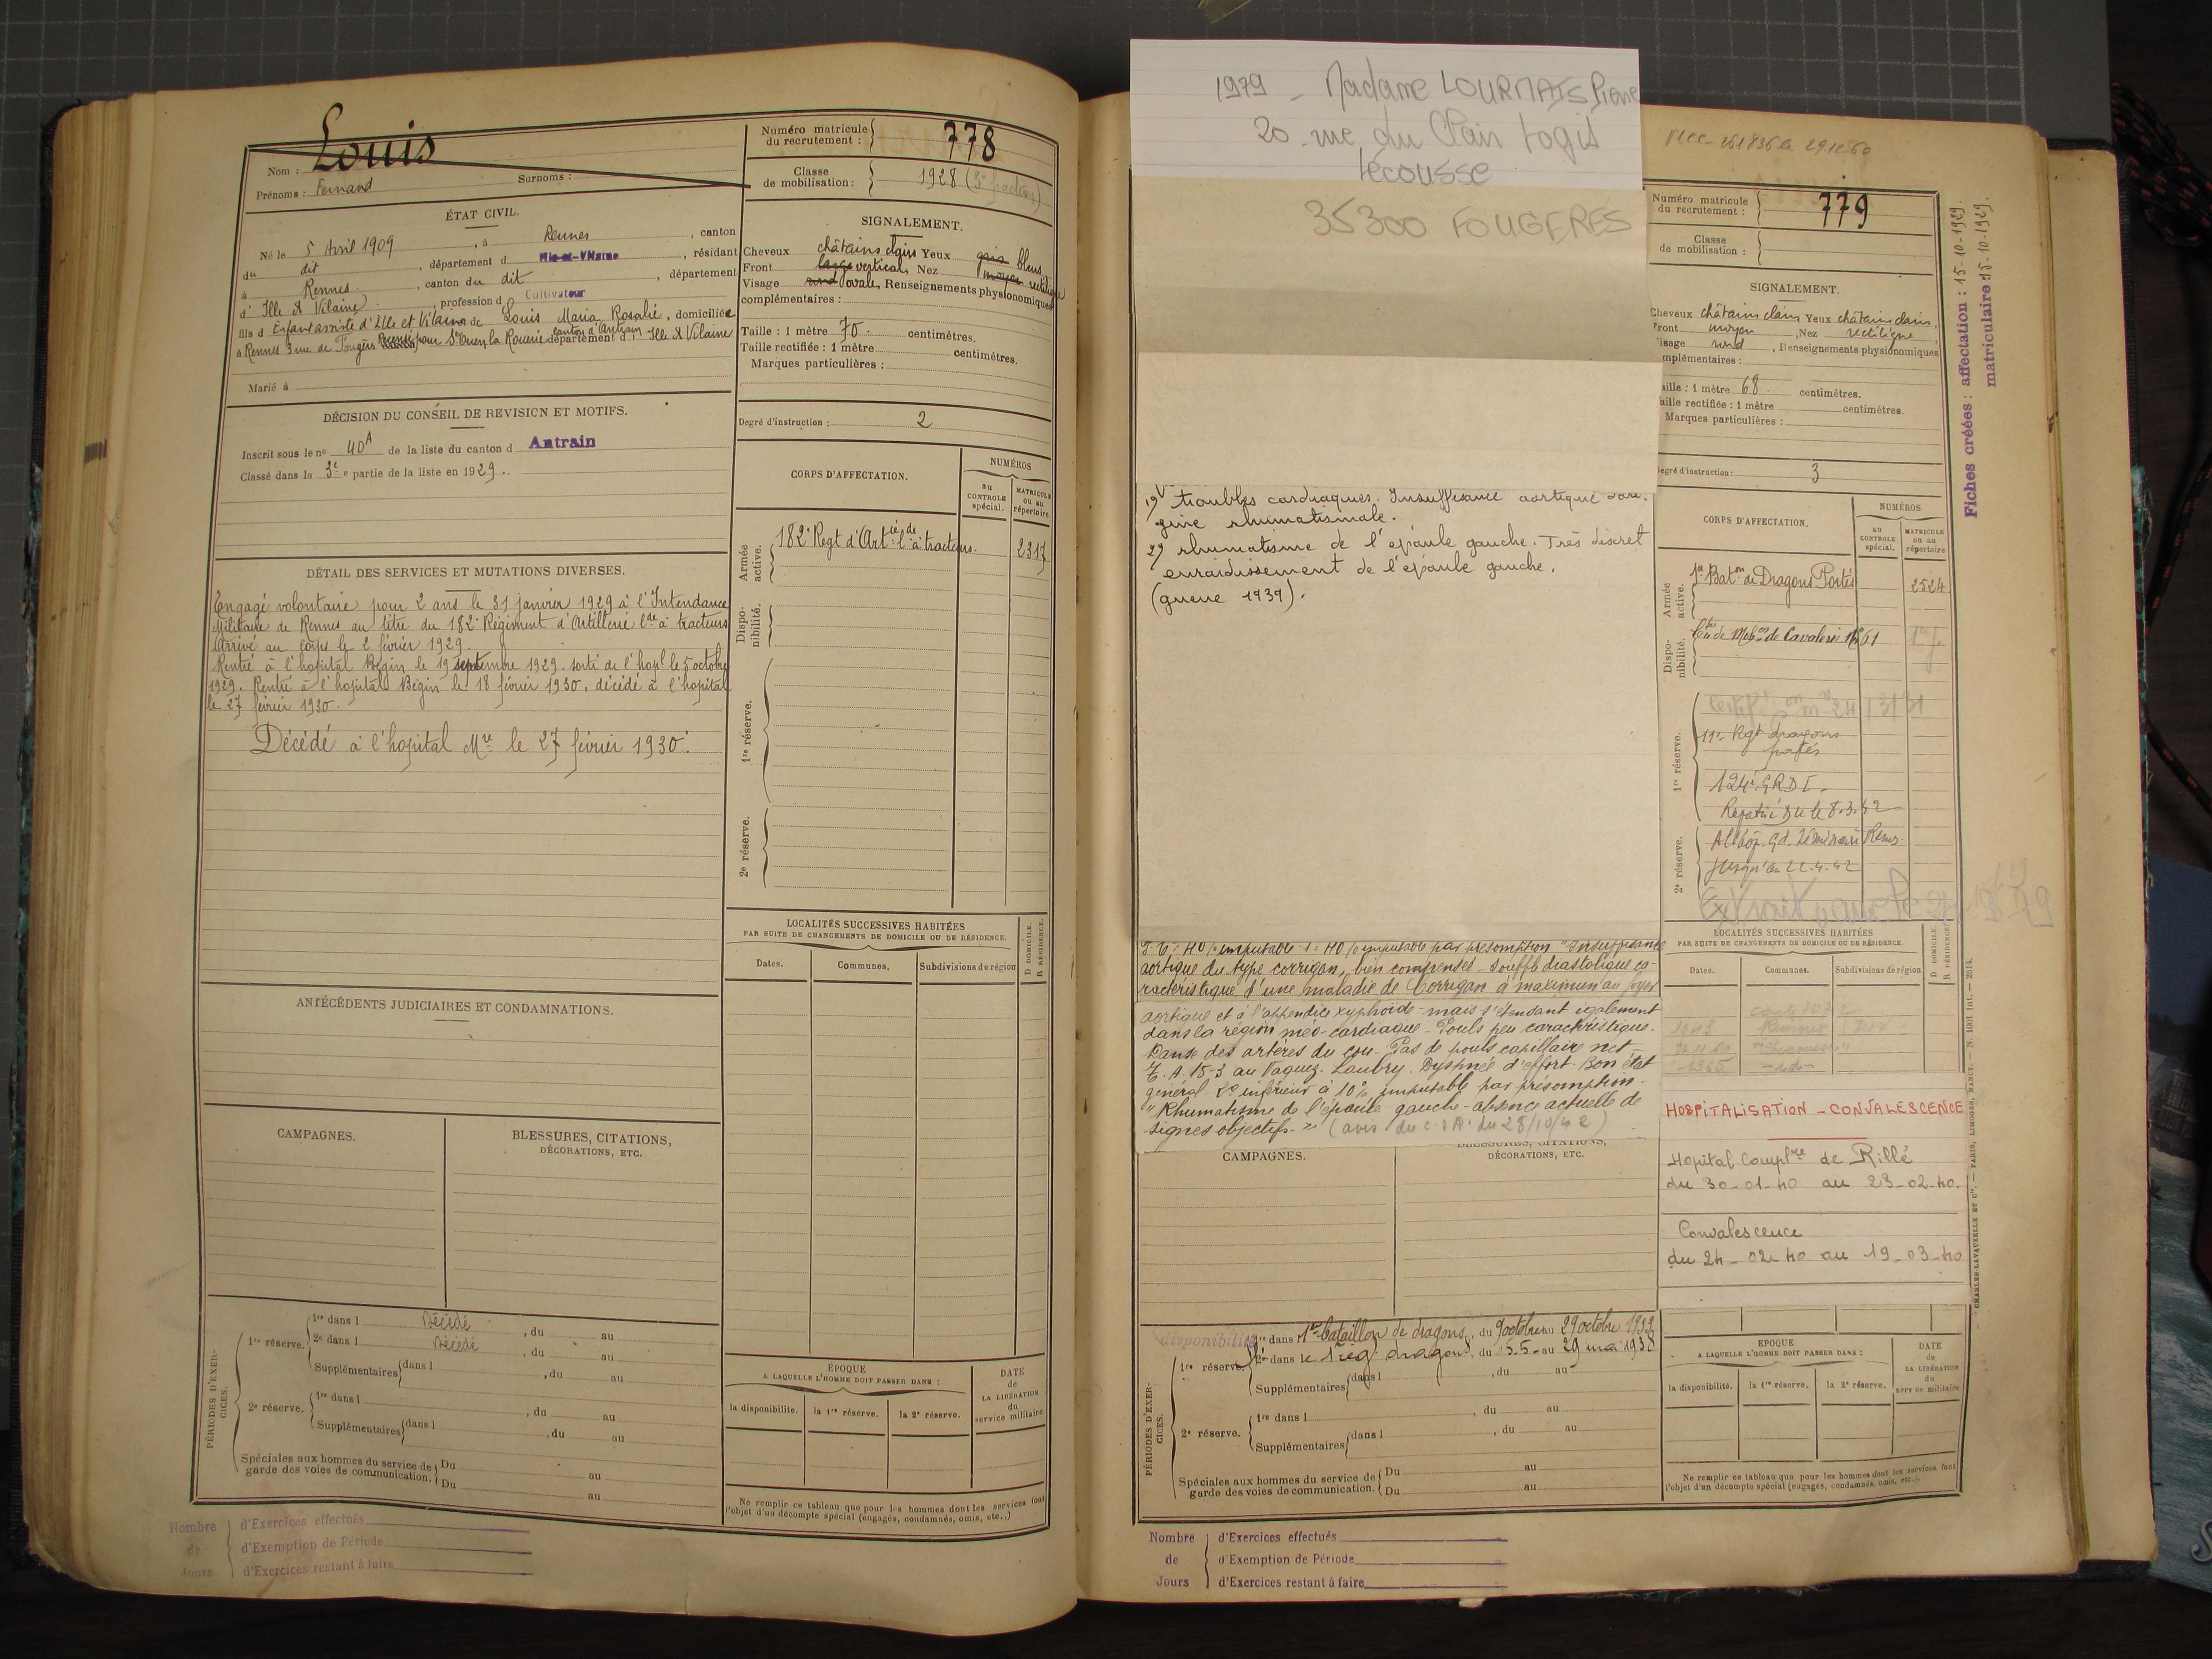 Louis
Nom :
Prénoms : Fernand Surnoms :
Numéro matricule du recrutement : 778
Classe de mobilisation : 1928 (3e fraction)
ÉTAT CIVIL.
Né le 5 Avril 1909, à Rennes, canton
du dit, département d Ille-et-Vilaine, résidant
à Rennes, canton du dit, département
d' Ille & Vilaine, profession d Cultivateur
fils d Enfant assisté d'Ille et Vilaine de Louis Maria Rosalie, domiciliée
à Rennes 3 rue de Fougères Recensé pour St Ouen la Rouerie canton d'Antrain département d' Ille & Vilaine
Marié à
SIGNALEMENT.
Cheveux châtains clairs Yeux gris bleus
Front large vertical, Nez moyen rectiligne
Visage rond ovale, Renseignements physionomiques
complémentaires :
Taille : 1 mètre 70 centimètres.
Taille rectifiée : 1 mètre centimètres.
Marques particulières :
DÉCISION DU CONSEIL DE REVISION ET MOTIFS.
Inscrit sous le no 40A de la liste du canton d Antrain
Classé dans la 3e e partie de la liste en 1929.
Degré d'instruction : 2
CORPS D'AFFECTATION.
NUMÉROS
au CONTROLE spécial.
MATRICULE ou au répertoire.
Armée active.
182e Regt d'Artie lde à tracteurs. 2317
Disponibilité.
1re réserve.
2e réserve.
DÉTAIL DES SERVICES ET MUTATIONS DIVERSES.
Engagé volontaire pour 2 ans le 31 janvier 1929 à l'Intendance
Militaire de Rennes au titre du 182e Régiment d'Artillerie lde à tracteurs
Arrivé au corps le 2 février 1929.
Rentré à l'hopital Bégin le 19 septembre 1929. sorti de l'hopl le 5 octobre
1929. Rentré à l'hopital Bégin le 18 février 1930, décédé à l'hopital
le 27 février 1930.
Décédé à l'hopital Mre le 27 février 1930.
LOCALITÉS SUCCESSIVES HABITÉES
PAR SUITE DE CHANGEMENTS DE DOMICILE OU DE RÉSIDENCE.
Dates. Communes, Subdivisions de région
D DOMICILE.
R RÉSIDENCE.
ANTÉCÉDENTS JUDICIAIRES ET CONDAMNATIONS.
CAMPAGNES.
BLESSURES, CITATIONS,
DÉCORATIONS, ETC.
PÉRIODES D'EXERCICES.
1re réserve.
1re dans l Décédé, du au
2e dans l Décédé, du au
Supplémentaires dans l, du au
2e réserve.
1re dans l, du au
Supplémentaires dans l, du au
Spéciales aux hommes du service de garde des voies de communication.
Du au
Du au
ÉPOQUE
A LAQUELLE L'HOMME DOIT PASSER DANS :
la disponibilité. la 1re réserve. la 2e réserve.
DATE de LA LIBÉRATION du service militaire.
Ne remplir ce tableau que pour les hommes dont les services font
l'objet d'un décompte spécial (engagés, condamnés, omis, etc..)
Nombre de Jours
d'Exercices effectués
d'Exemption de Période
d'Exercices restant à faire
1979 - Madame LOURMAIS Pierre
20 rue du Clair Logis
Lécousse
35300 FOUGERES
Numéro matricule du recrutement : 779
Classe de mobilisation :
SIGNALEMENT.
Cheveux châtains clairs Yeux châtains clairs,
Front moyen, Nez rectiligne,
Visage rond, Renseignements physionomiques
complémentaires :
Taille : 1 mètre 68 centimètres.
Taille rectifiée : 1 mètre centimètres.
Marques particulières :
Degré d'instruction : 3
Fiches créées : affectation : 15-10-1929.
matriculaire 15-10-1929.
1) troubles cardiaques. Insuffisance aortique d'ori-
gine rhumatismale.
2) rhumatisme de l'épaule gauche. Très discret
enraidissement de l'épaule gauche.
(guerre 1939).
CORPS D'AFFECTATION.
NUMÉROS
au CONTROLE spécial.
MATRICULE ou au répertoire
Armée active.
1er Baton de Dragons Portés 2524
Disponibilité.
Ctre de Mobon de Cavalerie
1re réserve.
11e Rgt dragons
portés
124e GRDI.
Rapatrié du le 8.3.42
2e réserve.
jusqu'au 22.4.42
I.P. 40% imputable 1° 40% imputable par présomption "Insuffisance
aortique du type corrigan, bien compensée - Souffle diastolique ca-
ractéristique d'une maladie de Corrigan à maximum au foyer
aortique et à l'appendice xyphoïde - mais s'étendant également
dans la région méso-cardiaque - Pouls peu caractéristique.
Danse des artères du cou - Pas de pouls capillaire net -
T. A. 15-3 au Vaquez-Laubry. Dyspnée d'effort. Bon état
général. 2° inférieur à 10% imputable par présomption -
"Rhumatisme de l'épaule gauche - absence actuelle de
signes objectifs." (avis du c. s. R. du 28/10/42)
LOCALITÉS SUCCESSIVES HABITÉES
PAR SUITE DE CHANGEMENTS DE DOMICILE OU DE RÉSIDENCE.
Dates. Communes. Subdivisions de région
D DOMICILE.
R RÉSIDENCE.
HOSPITALISATION - CONVALESCENCE
Hopital Complre de Rillé
du 30-01-40 au 23-02-40.
Convalescence
du 24-02-40 au 19-03-40
BLESSURES, CITATIONS,
CAMPAGNES.
DÉCORATIONS, ETC.
CHARLES-LAVAUZELLE ET Cie. — PARIS, LIMOGES, NANCY. — N. 1001 Int. — 2514.
PÉRIODES D'EXERCICES.
disponibilité
1re dans l 1er bataillon de dragons, du 9 octobre au 29 octobre 1933
1re réserve.
2e dans le 1 reg dragons, du 5-5- au 29 mai 1938
Supplémentaires dans l, du au
2e réserve.
1re dans l, du au
Supplémentaires dans l, du au
Spéciales aux hommes du service de garde des voies de communication.
Du au
Du au
EPOQUE
A LAQUELLE L'HOMME DOIT PASSER DANS :
la disponibilité. la 1re réserve. la 2e réserve.
DATE de LA LIBÉRATION du service militaire.
Ne remplir ce tableau que pour les hommes dont les services font
l'objet d'un décompte spécial (engagés, condamnés, omis, etc..).
Nombre de Jours
d'Exercices effectués
d'Exemption de Période
d'Exercices restant à faire